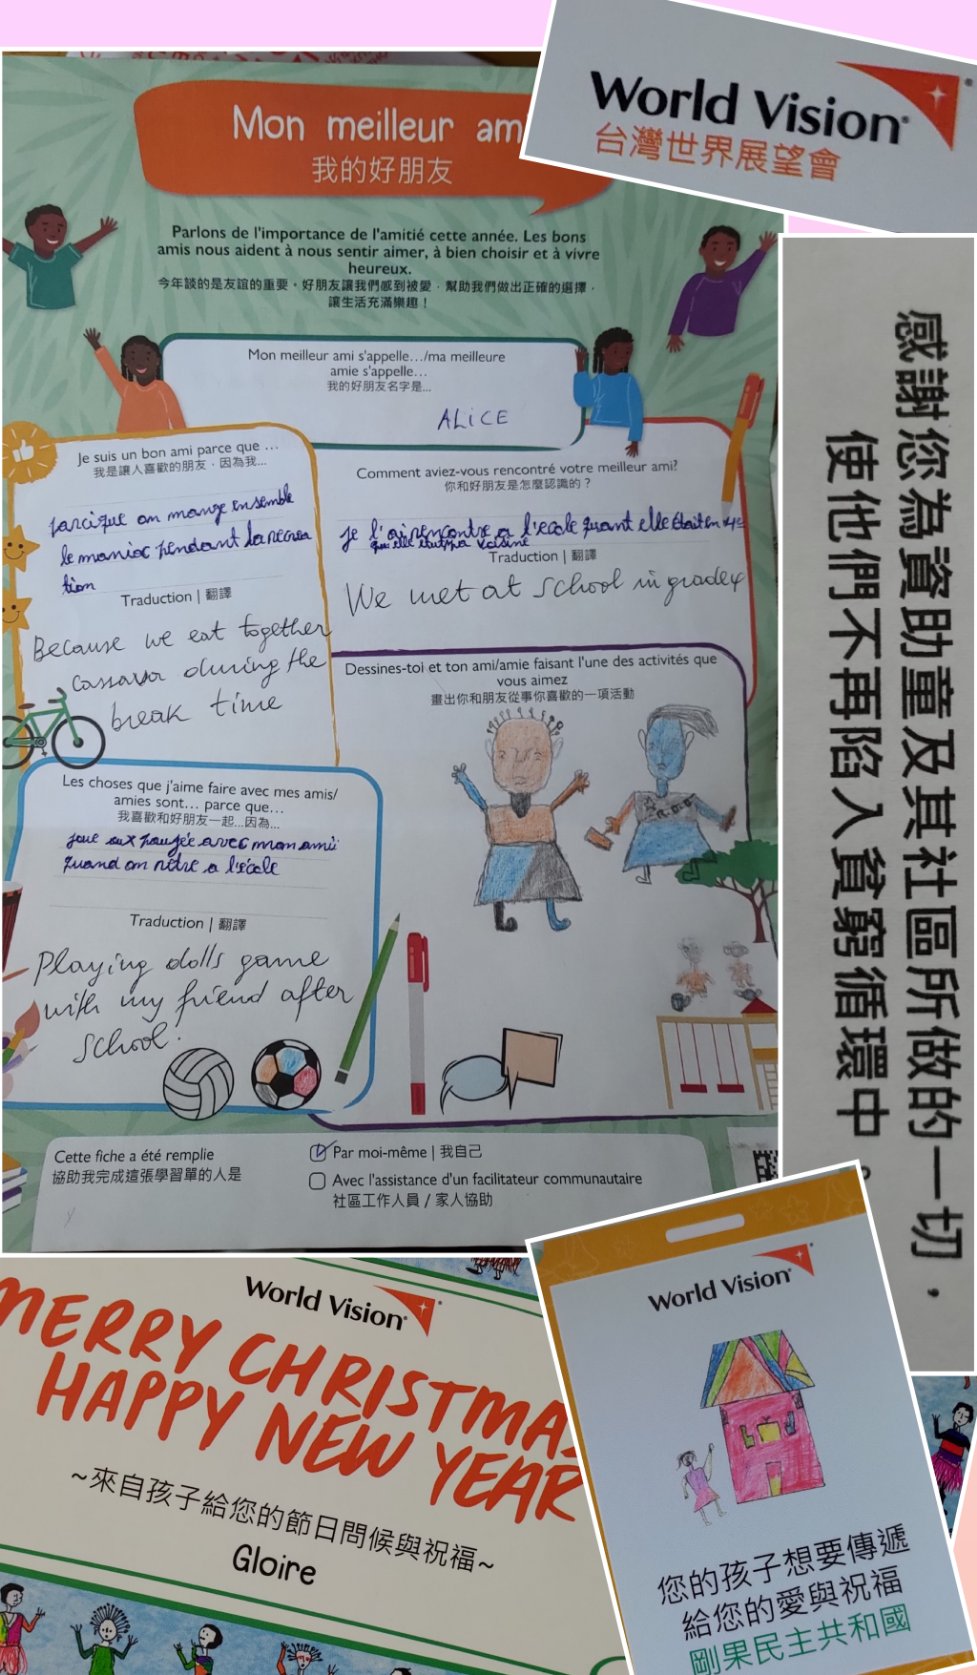 Mon meilleur am
我的好朋友
World Vision
台灣世界展望會
Parlons de l'importance de l'amitié cette année. Les bons
amis nous aident à nous sentir aimer, à bien choisir et à vivre
heureux.
今年談的是友誼的重要。好朋友讓我們感到被愛，幫助我們做出正確的選擇，
讓生活充滿樂趣！
Mon meilleur ami s'appelle…/ma meilleure
amie s'appelle…
我的好朋友名字是...
ALiCE
Je suis un bon ami parce que …
我是讓人喜歡的朋友，因為我...
parcique on mange ensemble
le manioc pendant la recrea
tion
Traduction | 翻譯
Because we eat together
cassava during the
break time
Comment aviez-vous rencontré votre meilleur ami?
你和好朋友是怎麼認識的？
je l'ai rencontre a l'ecole quant elle était en 4e
Traduction | 翻譯
We met at school in grade4
Dessines-toi et ton ami/amie faisant l'une des activités que
vous aimez
畫出你和朋友從事你喜歡的一項活動
Les choses que j'aime faire avec mes amis/
amies sont… parce que…
我喜歡和好朋友一起...因為...
joue aux poupée avec mon ami
quand on
a l'école
Traduction | 翻譯
Playing dolls game
with my friend after
school.
Cette fiche a été remplie
協助我完成這張學習單的人是
Par moi-même | 我自己
Avec l'assistance d'un facilitateur communautaire
社區工作人員 / 家人協助
感謝您為資助童及其社區所做的一切，
使他們不再陷入貧窮循環中。
World Vision
MERRY CHRISTMAS
HAPPY NEW YEAR
~來自孩子給您的節日問候與祝福~
Gloire
World Vision
您的孩子想要傳遞
給您的愛與祝福
剛果民主共和國